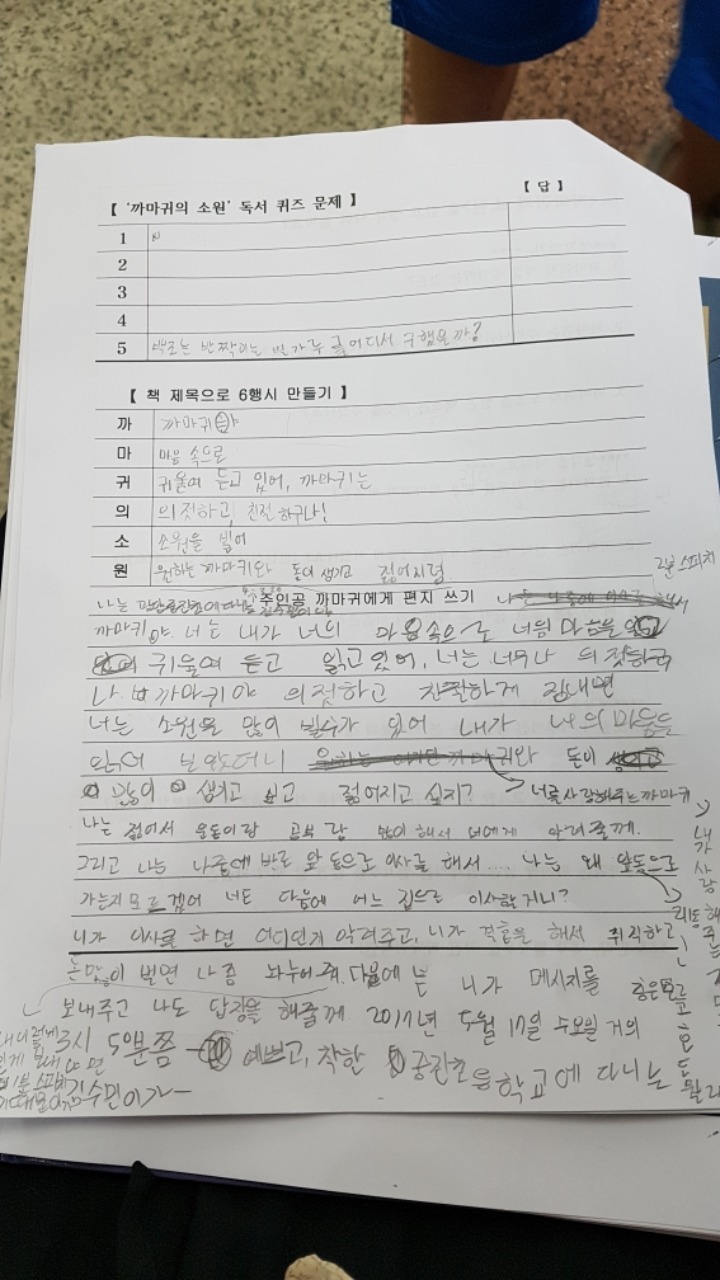 【 '까마귀의 소원' 독서 퀴즈 문제 】 【 답 】
1
2
3
4
5 백조는 반짝이는 별가루를 어디서 구했을까?
【 책 제목으로 6행시 만들기 】
까 까마귀야
마 마음 속으로
귀 귀울여 듣고 있어, 까마귀는
의 의젓하고, 친절하구나!
소 소원을 빌어
원 원하는 까마귀와 돈이 생기고 젊어지렴
2분 스피치
나는 주인공 까마귀에게 편지 쓰기
까마귀야. 너는 내가 너의 마음속으로 너의 마음을
귀울여 듣고 읽고 있어, 너는 너무나 의젓하구
나 까마귀야 의젓하고 친절하게 지내면
너는 소원을 많이 빌수가 있어 내가 너의 마음을
읽어 보았더니 돈이
많이 생기고 싶고 젊어지고 싶지? 너를 사랑해주는 까마귀
나는 젊어서 운동이랑 공부랑 많이 해서 너에게 알려줄께.
그리고 나는 나중에 바로 앞 동으로 이사를 해서.... 나는 왜 앞동으로
가는지 모르겠어 너도 다음에 어느 집으로 이사할거니?
니가 이사를 하면 어디인지 알려주고, 니가 결혼을 해서 취직하고
돈많이 벌면 나 좀 나누어줘. 다음에는 니가 메시지를
보내주고 나도 답장을 해줄께 2017년 5월 17일 수요일 거의
3시 5분쯤 예쁘고, 착한 초등학교에 다니는
수민이가-
내가 사랑해주는